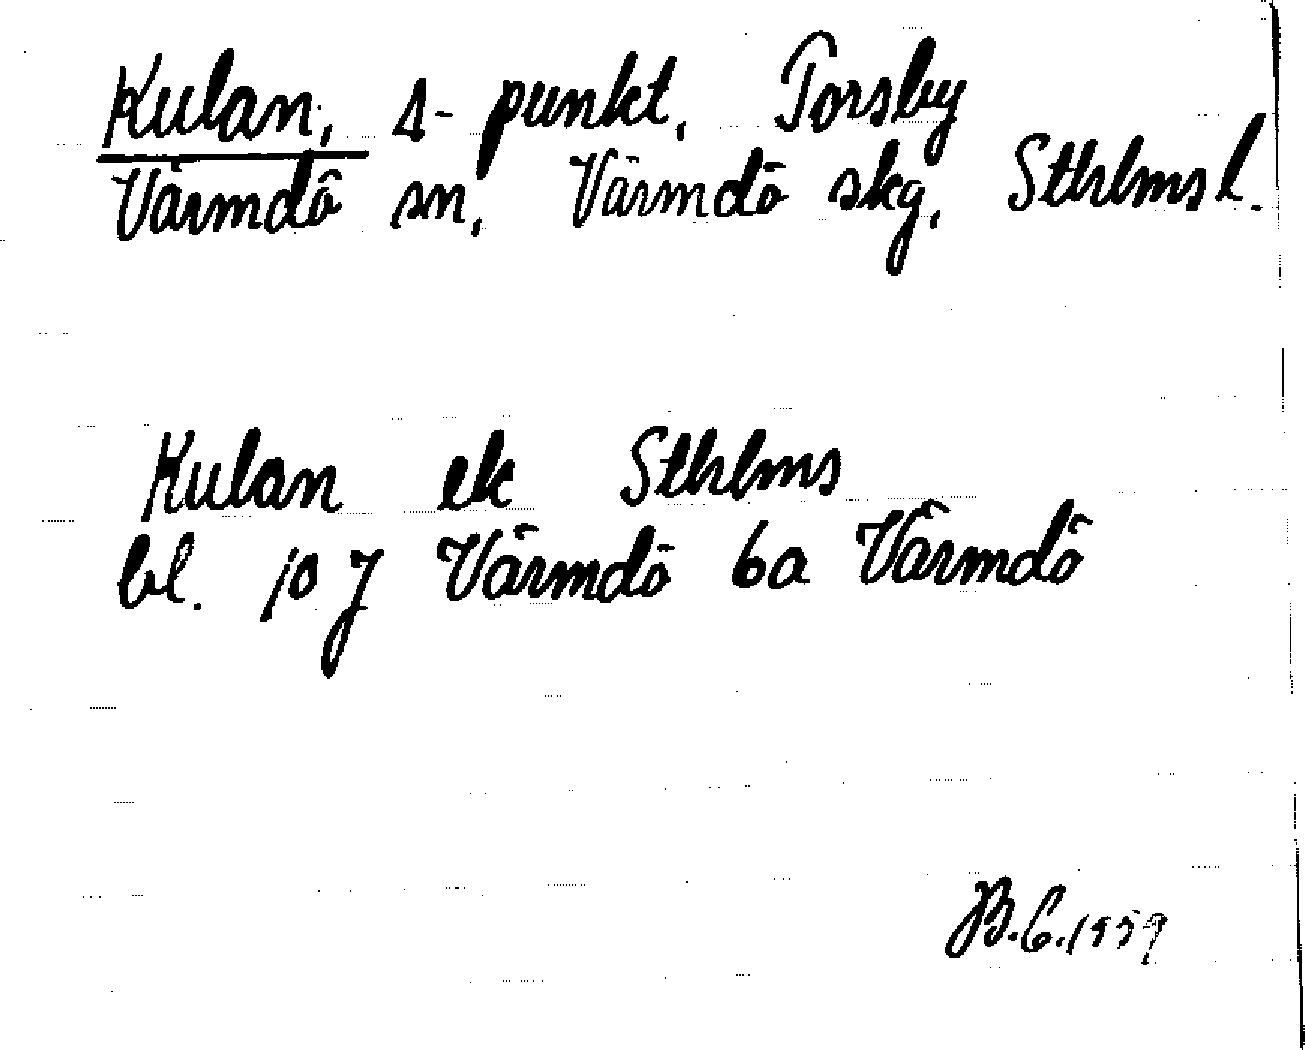 Kulan, Δ-punkt, Torsby
Värmdö sn, Värmdö skg, Sthlms l.
Kulan ek Sthlms
bl. 10 J Värmdö 6a Värmdö
B.C. 1959